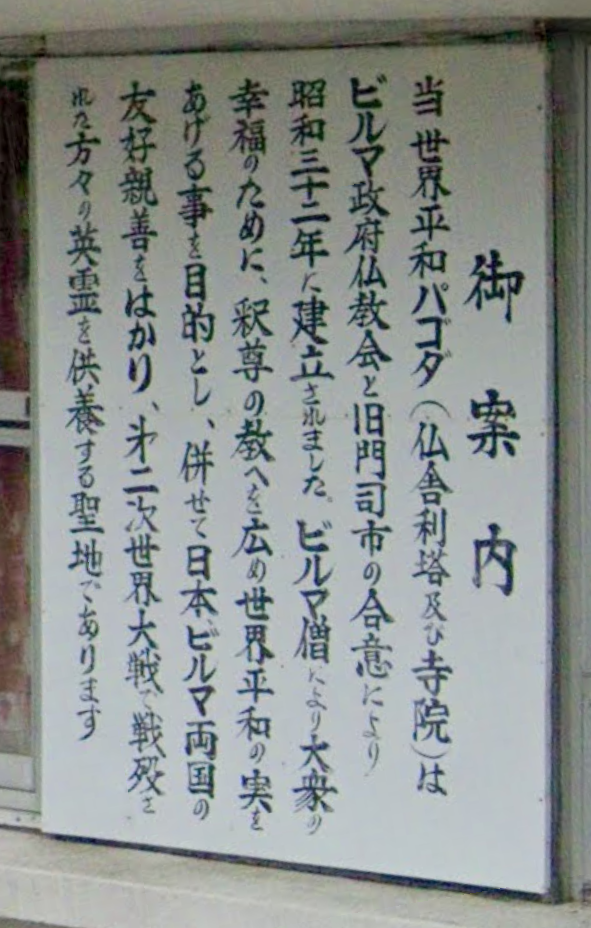 御案内
当世界平和パゴダ（仏舎利塔及び寺院）は
ビルマ政府仏教会と旧門司市の合意により
昭和三十二年に建立されました。ビルマ僧により大衆の
幸福のために、釈尊の教へを広め世界平和の実を
あげる事を目的とし、併せて日本ビルマ両国の
友好親善をはかり、㐧二次世界大戦で戦歿さ
れた方々の英霊を供養する聖地であります